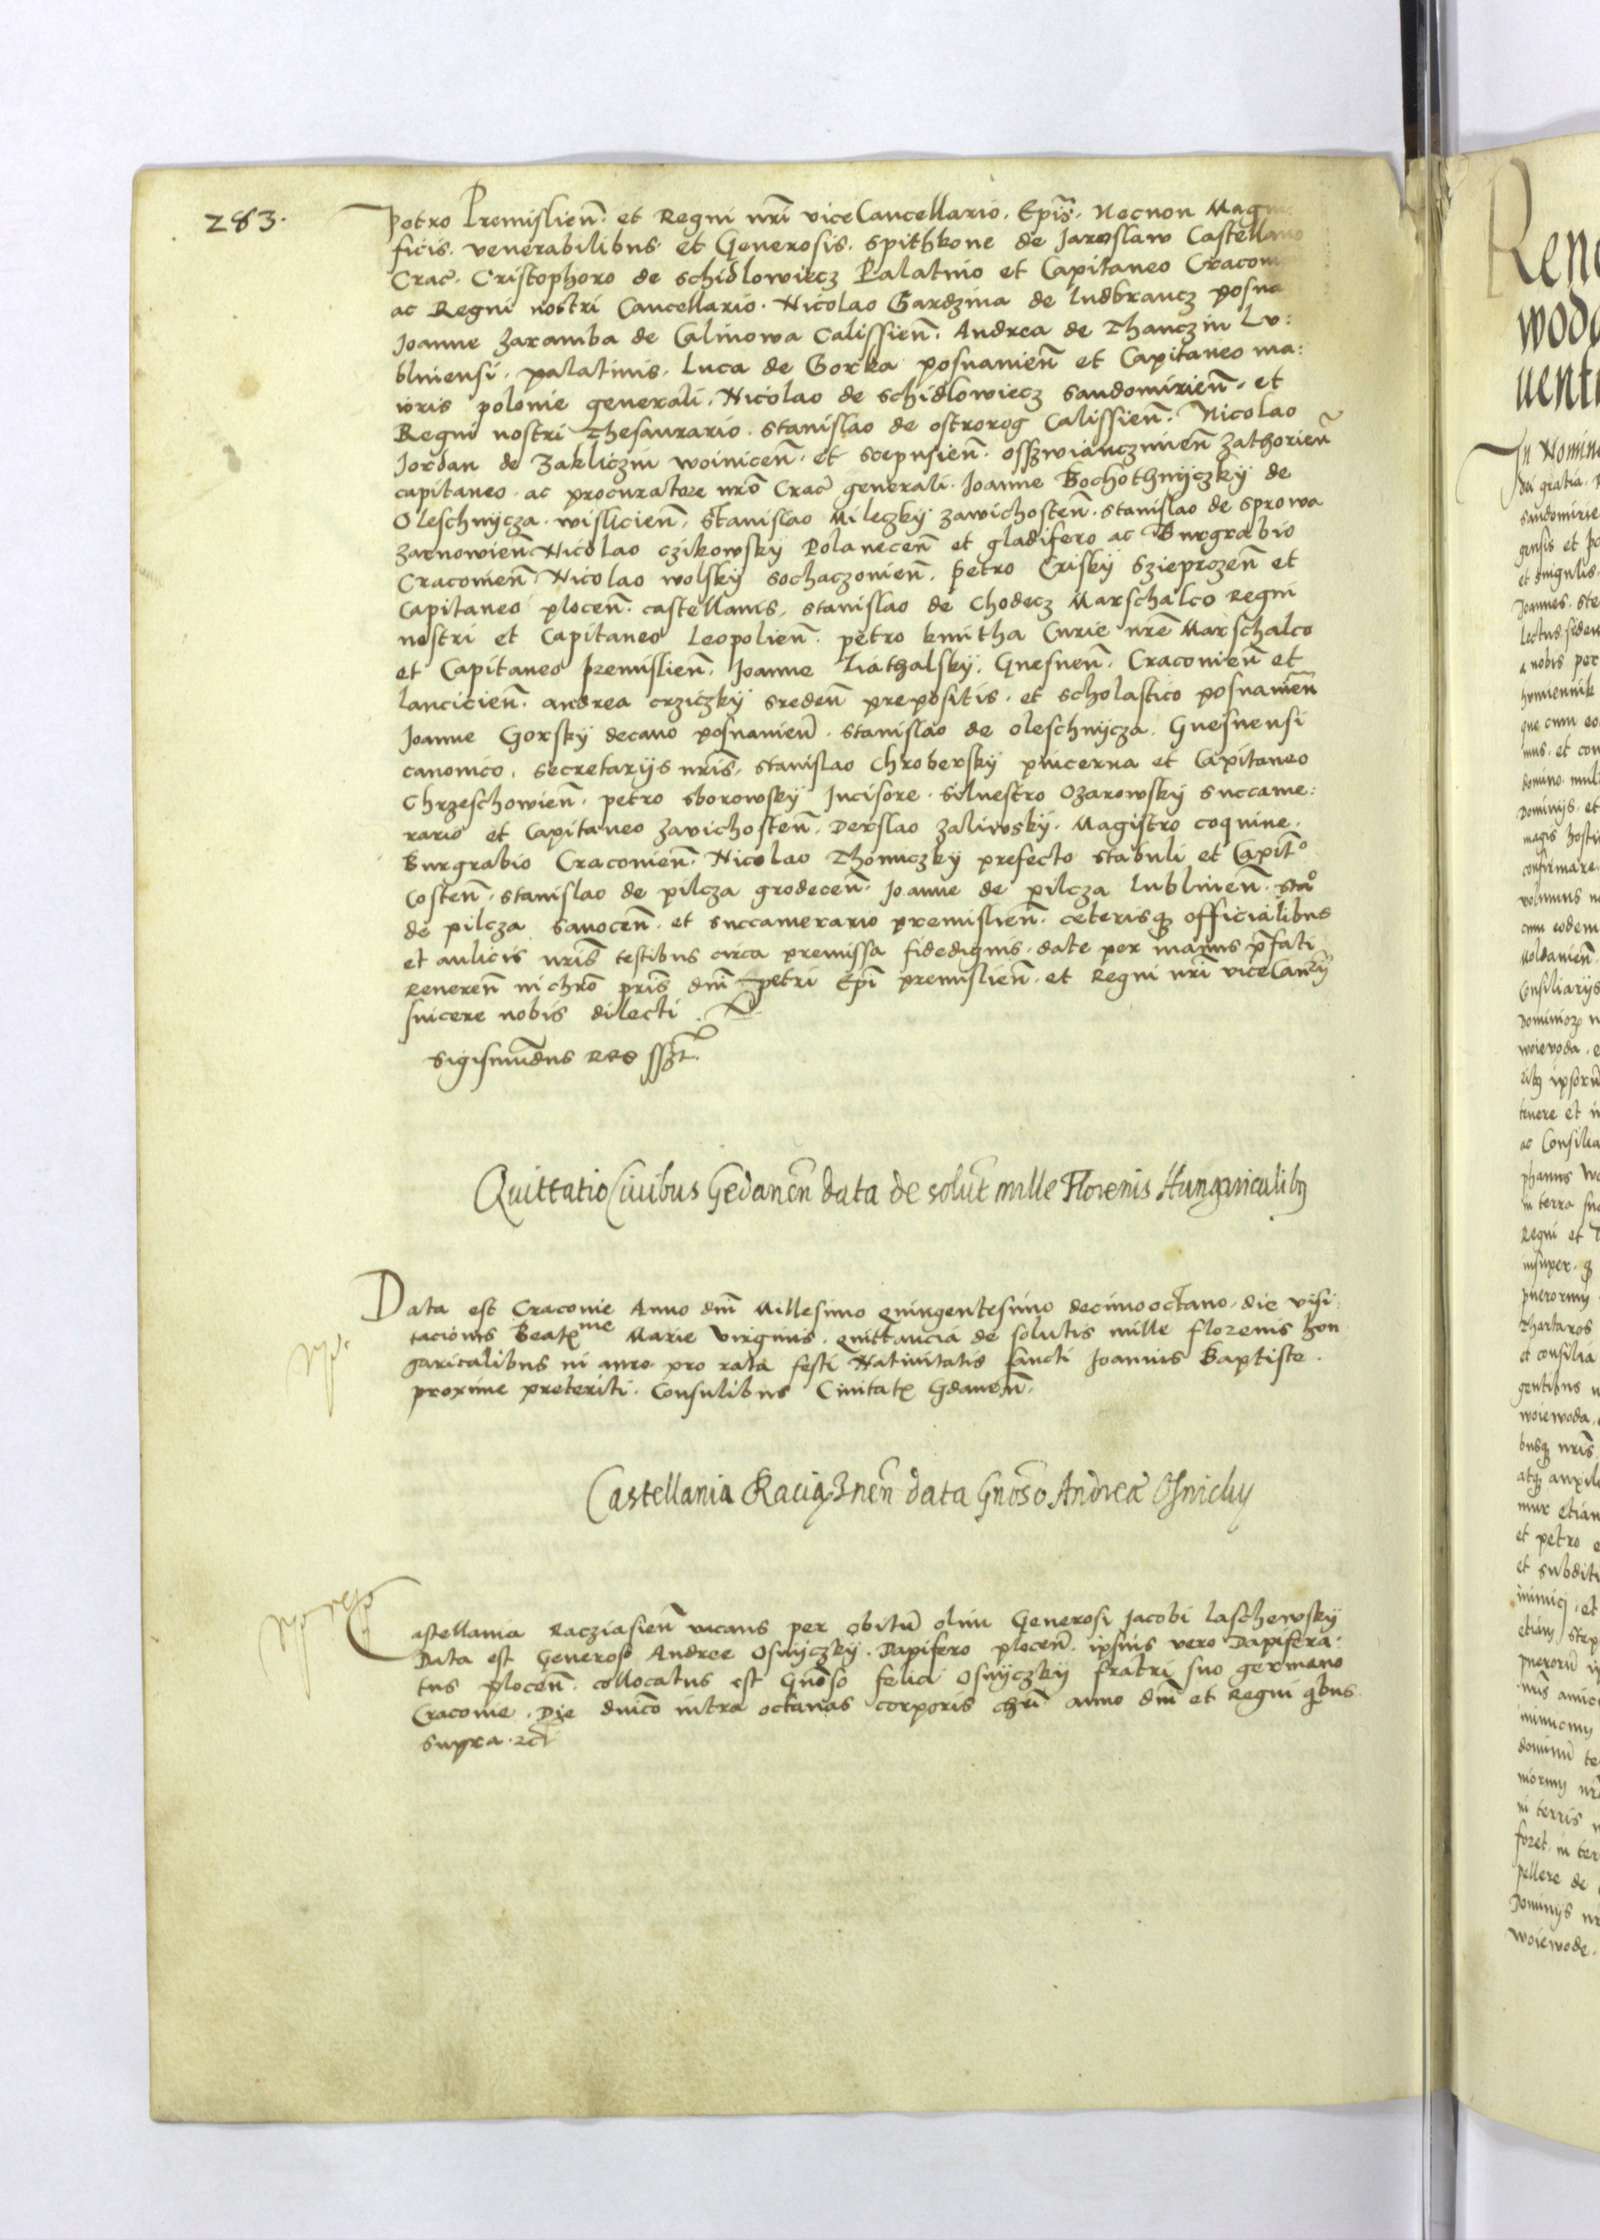 283.
Petro Premislien̄. et Regni nr̄i viceCancellario. Ep̄is. Necnon Magni
ficis. venerabilibus et Generosis. Spithkone de Jaroslaw Castellano
Crac̄. Cristophoro de Schidlowiecz Palatino et Capitaneo Cracoui
ac Regni nostri Cancellario. Nicolao Gardzina de ludbrancz posna
Joanne Zaramba de Calinowa Calissien̄. Andrea de Thanczin Lu:
blinensi. palatinis. Luca de Gorka posnanien̄ et Capitaneo ma:
ioris polonie generali. Nicolao de schidlowiecz Sandomirien̄. et
Regni nostri Thesaurario. Stanislao de ostrorog Calissien̄. Nicolao
Jordan de Zakliczin woinicen̄. et scepusien̄. osszwianczimen̄ Zathorien̄
capitaneo. ac procuratore nr̄o Crac̄ generali. Joanne Bochothnÿczkÿ de
Oleschnÿcza. wislicien̄. Stanislao Mileczkÿ zawichosten̄. Stanislao de Sprowa
Zarnowien̄. Nicolao czikowskÿ Polanecen̄ et gladifero ac Burgrabio
Cracouien̄. Nicolao wolskÿ sochaczouien̄. Petro Criskÿ Szieprczen̄ et
Capitaneo plocen̄. castellanis. Stanislao de Chodecz Marschalco Regni
nostri et Capitaneo Leopolien̄. petro kmitha Curie nr̄e Marschalco
et Capitaneo Premislien̄. Joanne Liathalskÿ. Gnesnen̄. Cracouien̄ et
lancicien̄. andrea crziczkÿ sreden̄ prepositis. et scholastico posnanien̄
Joanne Gorskÿ decano posnanien̄. Stanislao de oleschnÿcza. Gnesnensi
canonico. secretarÿs nr̄is. Stanislao Chroberskÿ pincerna et Capitaneo
Chrzeschowien̄. petro sborowskÿ Incisore. Siluestro Ozarowskÿ succame:
rario et Capitaneo Zauichosten̄. Derslao Zaliwskÿ. Magistro coquine.
Burgrabio Cracouien̄. Nicolao Thomiczkÿ prefecto stabuli et Capit̄o
Costen̄. Stanislao de pilcza grodecen̄. Joanne de pilcza Lublinen̄. Sta͞o
de pilcza Sanocen̄. et succamerario premislien̄. ceterisqȝ officialibus
et aulicis nr̄is testibus circa premissa fidedignis. date per manus p̄fati
Reueren̄ in chr̄o pr̄is dn̄i petri Ep̄i premislien̄. et Regni nr̄i viceCanrÿ
sincere nobis dilecti.
Sigismūdus Rex sszt.
Quittatio Ciuibus Gedanen̄ data de solut̄ mille Florenis Hungaricalibꝰ
Data est Cracouie Anno dn̄i Millesimo quingentesimo decimooctauo. die visi
tacionis Beatꝭme Marie virginis. quittancia de solutis mille florenis hon
garicalibus in auro pro rata festi Natiuitatis sancti Joannis Baptiste.
proxime preteriti. Consulibus Ciuitatꝭ Gdanen̄.
Castellania Raciąznen̄ data Gn̄oso Andreæ Osnicky
Castellania Racziasien̄ vacans per obitū olim Generosi Jacobi Laschewskÿ
Data est Generoso Andree Osnÿczkÿ. Dapifero plocen̄. ipsius vero Dapifera:
tus plocen̄. collocatus est Gn̄oso felici Osnÿczkÿ fratri suo germano
Cracouie. Die dn̄ico intra octauas corporis chr̄i anno dn̄i et Regni qb̄us
supra. ꝛc̄